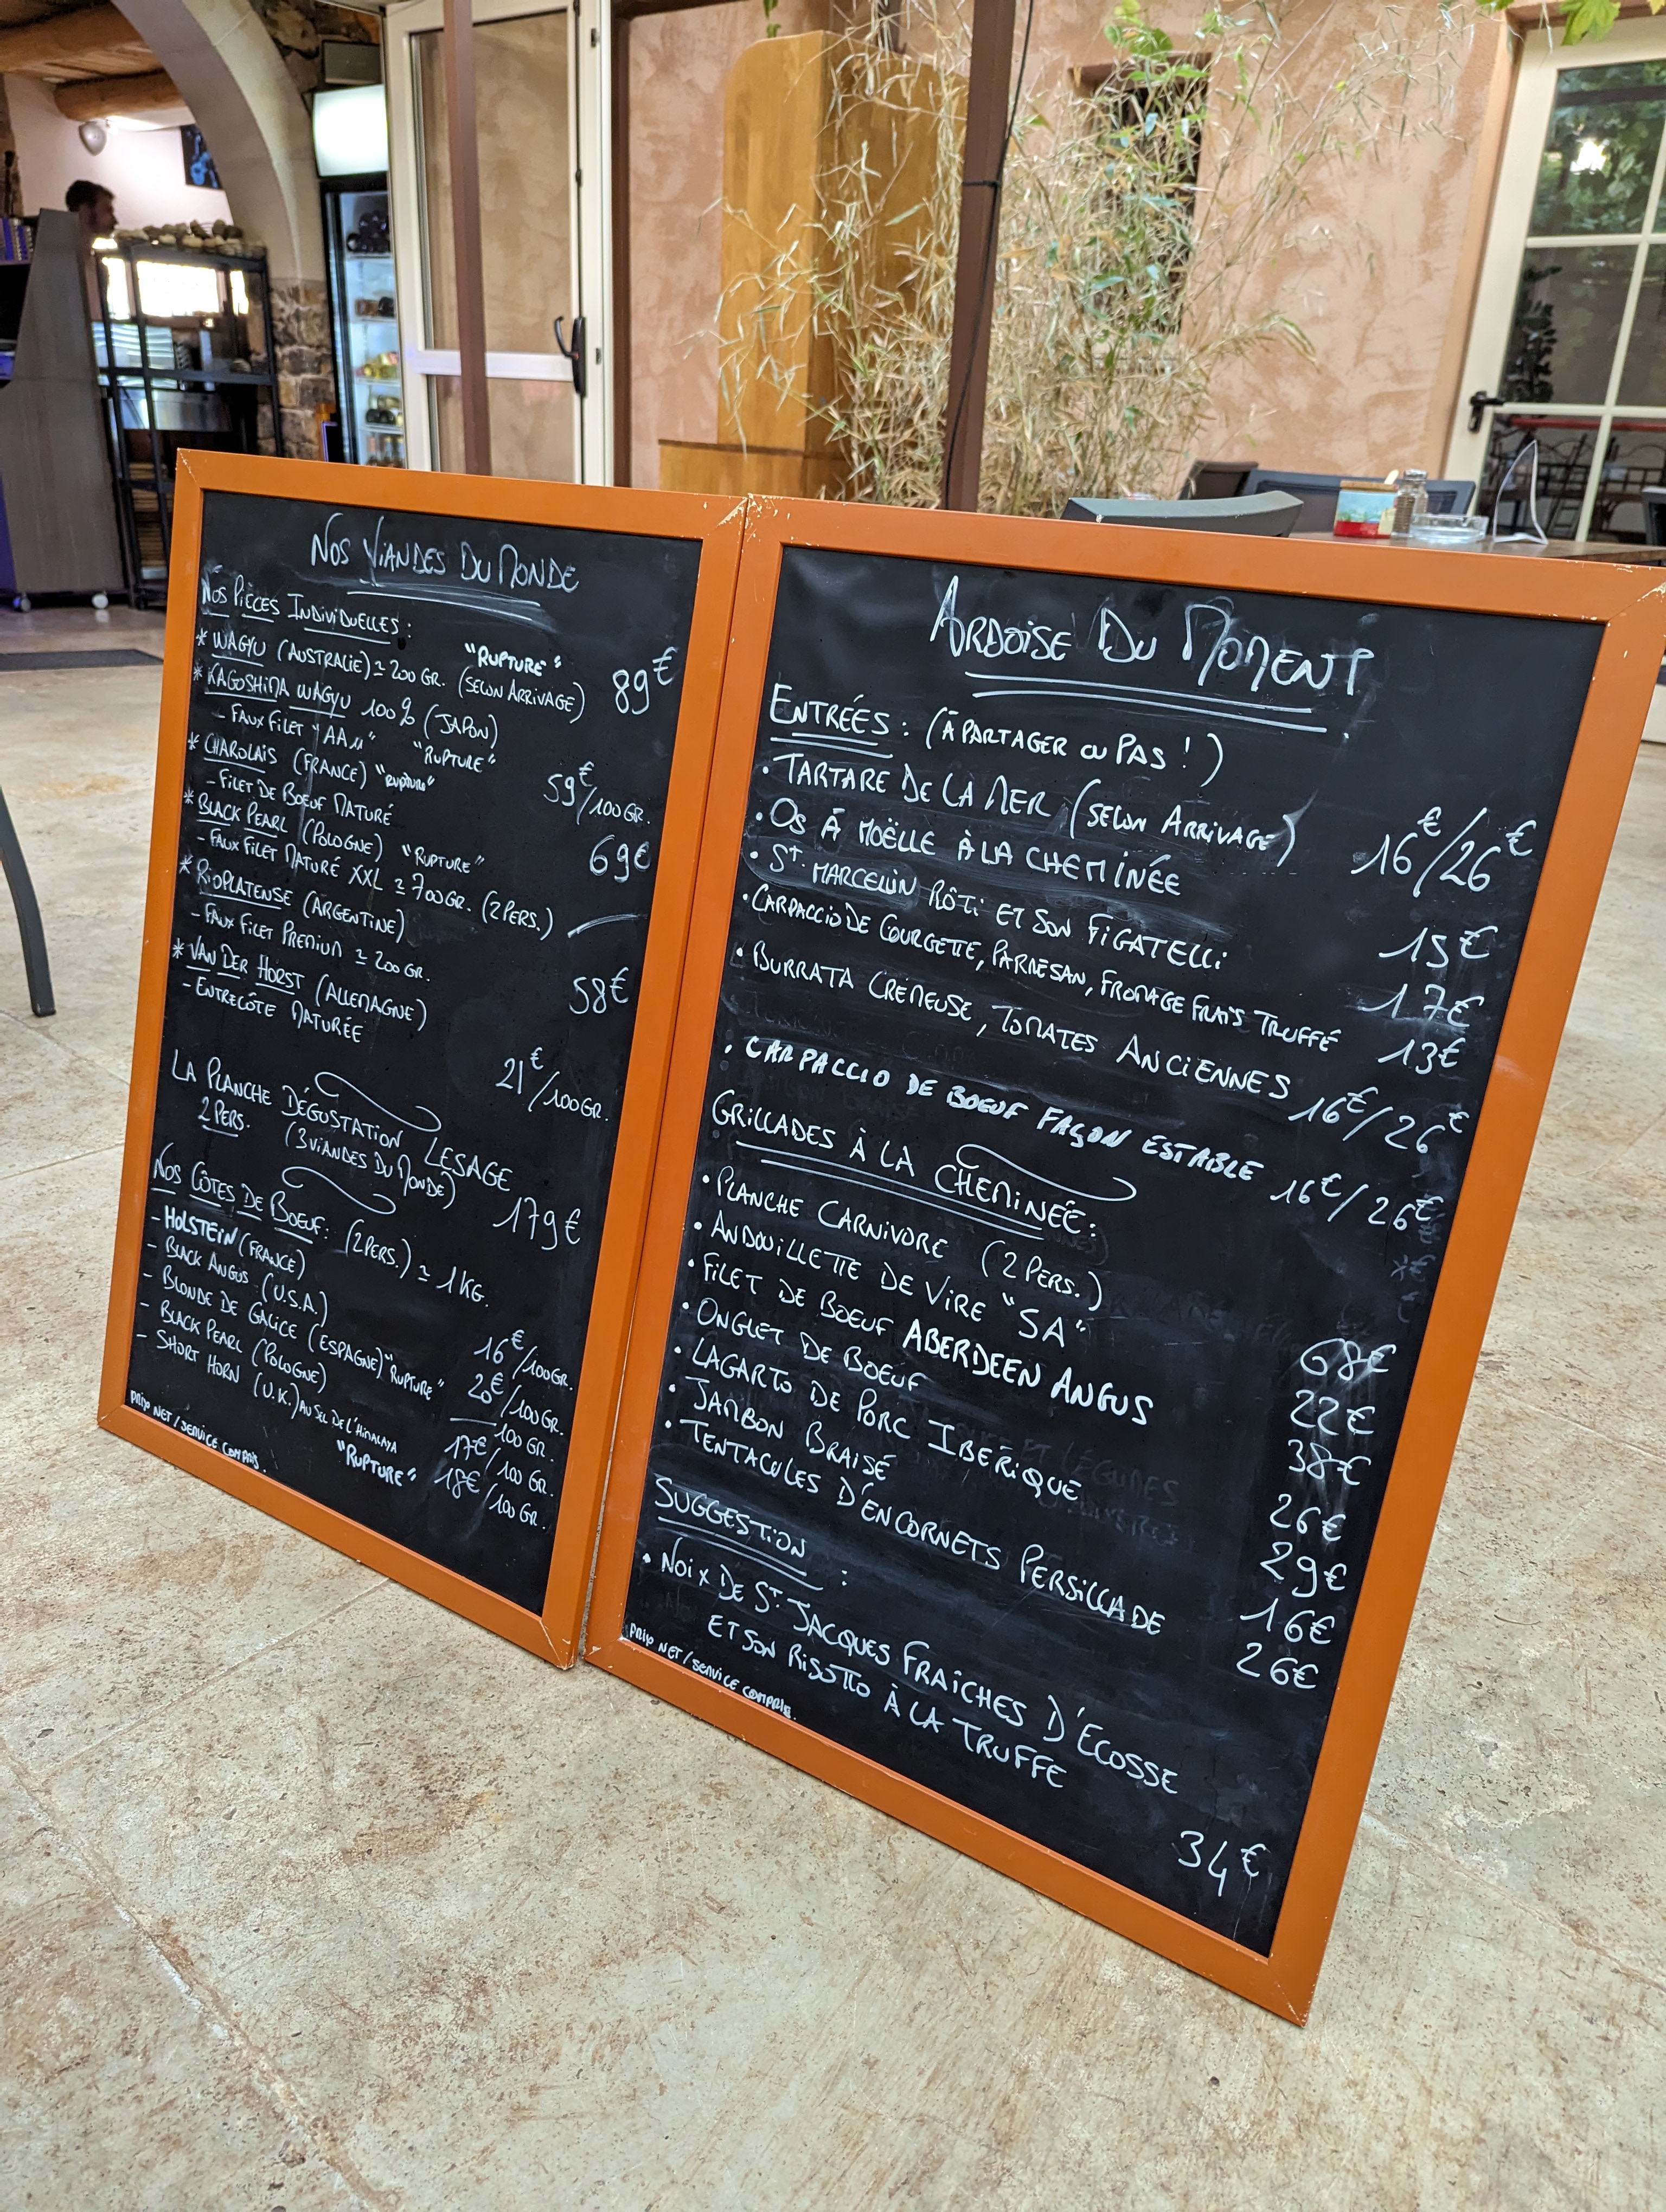 NOS VIANDES DU MONDE
NOS PIÈCES INDIVIDUELLES :
* WAGYU (AUSTRALIE) ≃ 200 GR. (SELON ARRIVAGE) "RUPTURE" 89€
* KAGOSHIMA WAGYU 100% (JAPON)
- FAUX FILET "AA" "RUPTURE" 59€/100GR.
* CHAROLAIS (FRANCE) "RUPTURE"
- FILET DE BOEUF MATURÉ 69€
* BLACK PEARL (POLOGNE) "RUPTURE"
- FAUX FILET MATURÉ XXL ≃ 700GR. (2PERS.) —
* RIOPLATENSE (ARGENTINE)
- FAUX FILET PREMIUM ≃ 200 GR. 58€
* VAN DER HORST (ALLEMAGNE)
- ENTRECÔTE MATURÉE 21€/100GR.
LA PLANCHE DÉGUSTATION LESAGE
2 PERS. (3 VIANDES DU MONDE) 179€
NOS CÔTES DE BOEUF: (2PERS.) ≃ 1KG.
- HOLSTEIN (FRANCE) 16€/100GR.
- BLACK ANGUS (U.S.A.) 20€/100GR.
- BLONDE DE GALICE (ESPAGNE) "RUPTURE" — 100 GR.
- BLACK PEARL (POLOGNE) 17€/100 GR.
- SHORT HORN (U.K.) AU SEL DE L'HIMALAYA "RUPTURE" 18€/100 GR.
PRIX NET/SERVICE COMPRIS.
ARDOISE DU MOMENT
ENTRÉES : (À PARTAGER OU PAS !)
• TARTARE DE LA MER (SELON ARRIVAGE) 16€/26€
• OS À MOËLLE À LA CHEMINÉE 15€
• ST MARCELLIN RÔTI ET SON FIGATELLI 17€
• CARPACCIO DE COURGETTE, PARMESAN, FROMAGE FRAIS TRUFFÉ 13€
• BURRATA CREMEUSE, TOMATES ANCIENNES 16€/26€
• CARPACCIO DE BOEUF FAÇON ESTABLE 16€/26€
GRILLADES À LA CHEMINÉE :
• PLANCHE CARNIVORE (2 PERS.) 68€
• ANDOUILLETTE DE VIRE "SA" 22€
• FILET DE BOEUF ABERDEEN ANGUS 38€
• ONGLET DE BOEUF 26€
• LAGARTO DE PORC IBÉRIQUE 29€
• JAMBON BRAISÉ 16€
• TENTACULES D'ENCORNETS PERSILLADE 26€
SUGGESTION :
• NOIX DE ST JACQUES FRAÎCHES D'ECOSSE
ET SON RISOTTO À LA TRUFFE 34€
PRIX NET/SERVICE COMPRIS.